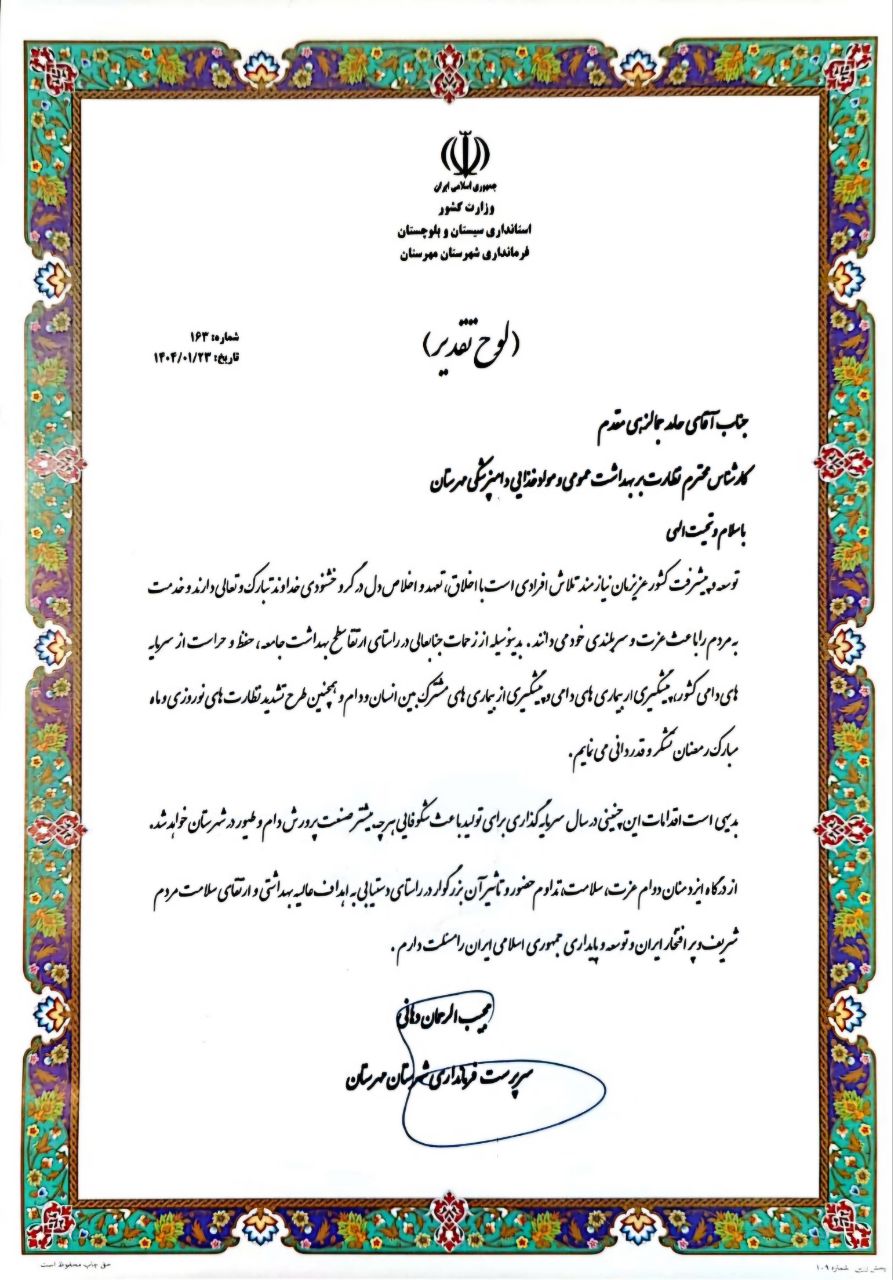 جمهوری اسلامی ایران
وزارت کشور
استانداری سیستان و بلوچستان
فرمانداری شهرستان مهرستان
شماره: ۱۶۳
تاریخ: ۱۴۰۴/۰۱/۲۳
(لوح تقدیر)
جناب آقای حامد جمالزهی مقدم
کارشناس محترم نظارت بر بهداشت عمومی و مواد غذایی دامپزشکی مهرستان
با سلام و تحیت الهی
توسعه و پیشرفت کشور عزیزمان نیازمند تلاش افرادی است با اخلاق، تعهد و اخلاص دل در گرو خشنودی خداوند تبارک و تعالی دارند و خدمت
به مردم را باعث عزت و سربلندی خود می دانند . بدینوسیله از زحمات جنابعالی در راستای ارتقا سطح بهداشت جامعه، حفظ و حراست از سرمایه
های دامی کشور، پیشگیری از بیماری های دامی و پیشگیری از بیماری های مشترک بین انسان و دام و همچنین طرح تشدید نظارت های نوروزی و ماه
مبارک رمضان تشکر و قدردانی می نمایم.
بدیهی است اقدامات این چنینی در سال سرمایه گذاری برای تولید باعث شکوفایی هرچه بیشتر صنعت پرورش دام و طیور در شهرستان خواهد شد.
از درگاه ایزد منان دوام عزت، سلامت، تداوم حضور و تاثیر آن بزرگوار در راستای دستیابی به اهداف عالیه بهداشتی و ارتقای سلامت مردم
شریف و پر افتخار ایران و توسعه و پایداری جمهوری اسلامی ایران را مسئلت دارم .
مجیب الرحمان دهانی
سرپرست فرمانداری شهرستان مهرستان
حق چاپ محفوظ است
پخش زرین شماره ۱۰۹